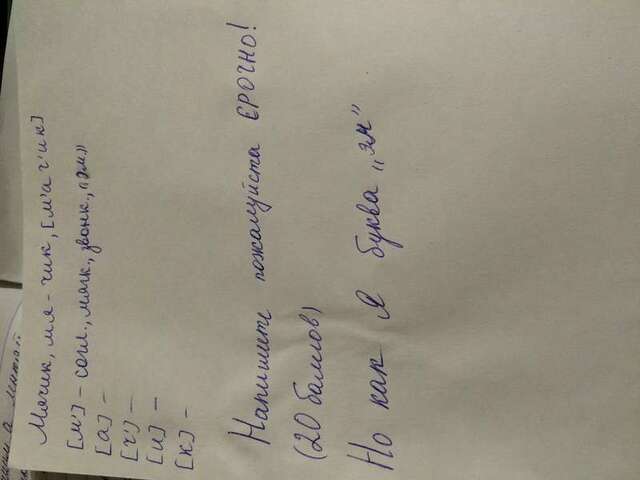 Мячик, мя-чик, [м'а ч'ик]
[м'] - согл., мягк., звонк., "эм"
[а] -
[ч'] -
[и] -
[к] -
Напишите пожалуйста СРОЧНО!
(20 баллов)
Но как Я буква "эм"